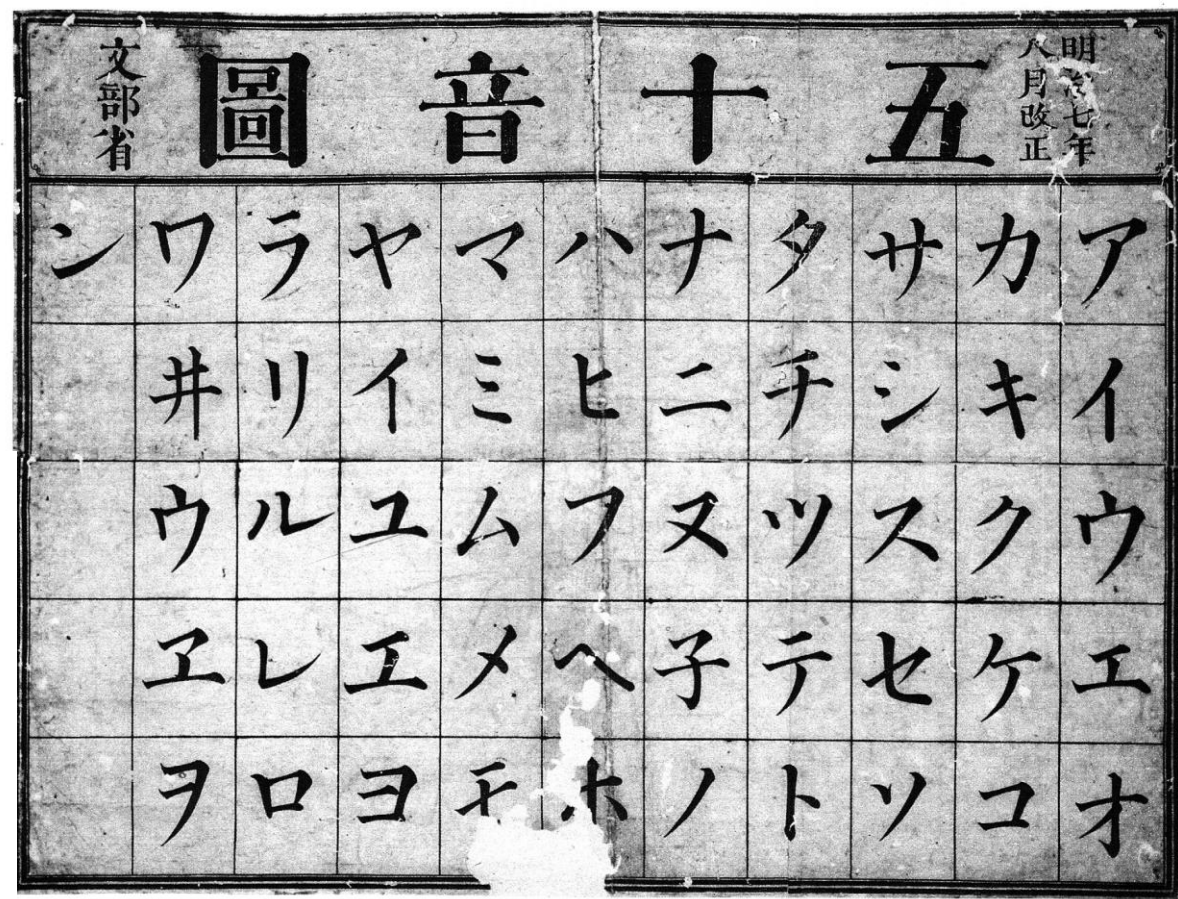 明治七年
八月改正
五十音圖
文部省
アイウエオ
カキクケコ
サシスセソ
タチツテト
ナニヌ子ノ
ハヒフヘホ
マミムメモ
ヤイユエヨ
ラリルレロ
ワ井ウヱヲ
ン